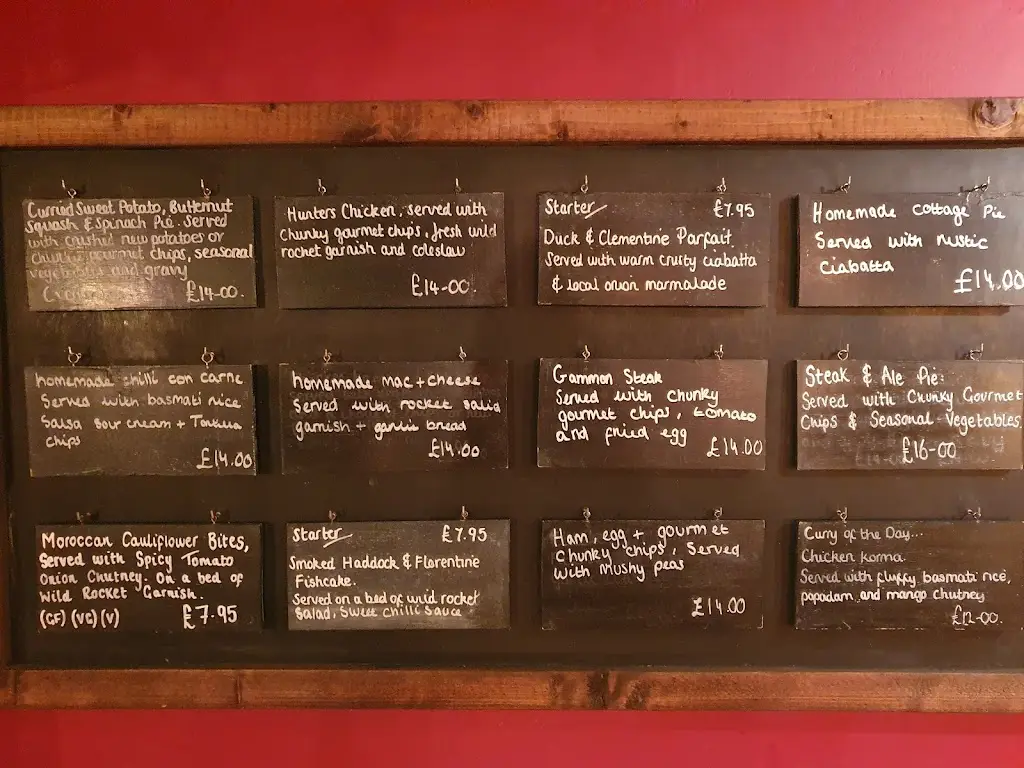 Curried Sweet Potato, Butternut
Squash & Spinach Pie. Served
with crushed new potatoes or
chunky gourmet chips, seasonal
vegetables and gravy
£14-00.
Hunters Chicken, served with
Chunky gourmet chips, fresh wild
rocket garnish and coleslaw
£14-00.
Starter £7.95
Duck & Clementine Parfait.
Served with warm crusty ciabatta
& local onion marmalade
Homemade cottage Pie
Served with rustic
ciabatta
£14.00
homemade chilli con carne
Served with basmati rice
Salsa sour cream +
chips
£14.00
homemade mac + cheese
Served with rocket salad
garnish + garlic bread
£14.00
Gammon Steak
Served with chunky
gourmet chips, tomato
and fried egg
£14.00
Steak & Ale Pie:
Served with Chunky Gourmet
Chips & Seasonal Vegetables
£16-00
Moroccan Cauliflower Bites,
Served with Spicy Tomato
Onion Chutney. On a bed of
Wild Rocket Garnish.
(GF) (VG) (V) £7.95
Starter £7.95
Smoked Haddock & Florentine
Fishcake.
Served on a bed of wild rocket
Salad, Sweet Chilli Sauce
Ham, egg + gourmet
Chunky chips, Served
with Mushy peas
£14.00
Curry of the Day...
Chicken korma.
Served with fluffy basmati rice,
popadam, and mango chutney
£12-00.